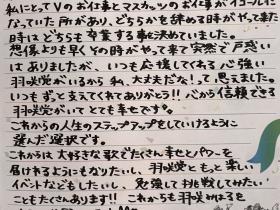 私にとってVのお仕事とマスカッツのお仕事がイコールに
なっていた所があり、どちらかを辞める時がやって来た
時はどちらも卒業する事に決めていました。
想像よりも早くその時がやって来て突然で戸惑い
はありましたが、いつも応援してくれる心強い
羽咲党がいるから私、大丈夫だな!って思えました。
いつもずっと支えてくれてありがとう!!心から信頼できる
羽咲党がいてとても幸せです。
これからの人生のステップアップをしていけるように
選んだ選択です。
これからは大好きな歌でたくさん幸せとパワーを
届けれるようにもなりたいし、羽咲党ともっと楽しい
イベントなどもしたいし、勉強して挑戦してみたい!
こともたくさんあります!! これからも羽咲みはるを